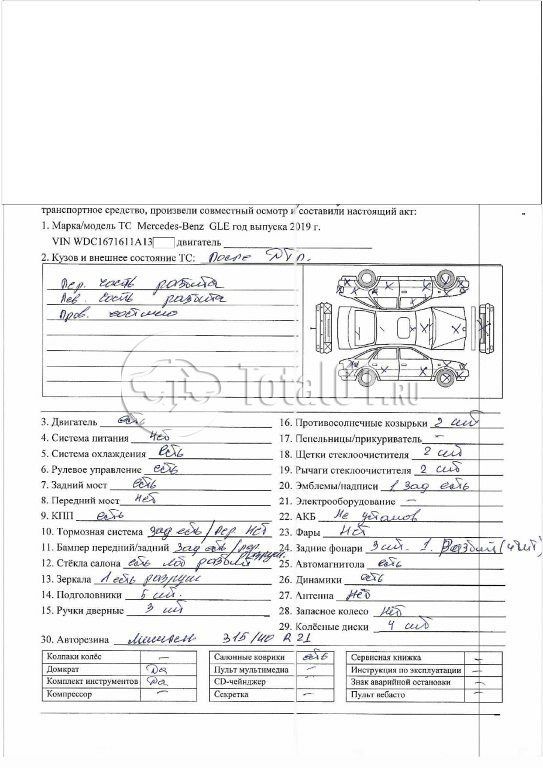 транспортное средство, произвели совместный осмотр и составили настоящий акт:
1. Марка/модель ТС Mercedes-Benz GLE год выпуска 2019 г.
VIN WDC1671611A13 двигатель
2. Кузов и внешнее состояние ТС: После ДТП.
Пер. часть разбита
Лев. часть разбита
Прав. частично
Total01.ru
3. Двигатель есть
4. Система питания Нет
5. Система охлаждения Есть
6. Рулевое управление есть
7. Задний мост есть
8. Передний мост Нет
9. КПП есть
10. Тормозная система зад есть / Пер. Нет
11. Бампер передний/задний Зад есть / пер.
12. Стёкла салона есть лоб разбит
13. Зеркала 1 есть
14. Подголовники 5 шт.
15. Ручки дверные 3 шт
16. Противосолнечные козырьки 2 шт
17. Пепельницы/прикуриватель –
18. Щетки стеклоочистителя 2 шт
19. Рычаги стеклоочистителя 2 шт
20. Эмблемы/надписи 1 зад есть
21. Электрооборудование –
22. АКБ Не установ
23. Фары Нет
24. Задние фонари 3 шт. 1.
25. Автомагнитола есть
26. Динамики есть
27. Антенна Нет
28. Запасное колесо Нет
29. Колёсные диски 4 шт
30. Авторезина 315/40 R21
Колпаки колёс –
Домкрат Да
Комплект инструментов Да
Компрессор –
Салонные коврики есть
Пульт мультимедиа –
CD-чейнджер –
Секретка –
Сервисная книжка –
Инструкция по эксплуатации –
Знак аварийной остановки –
Пульт вебасто –